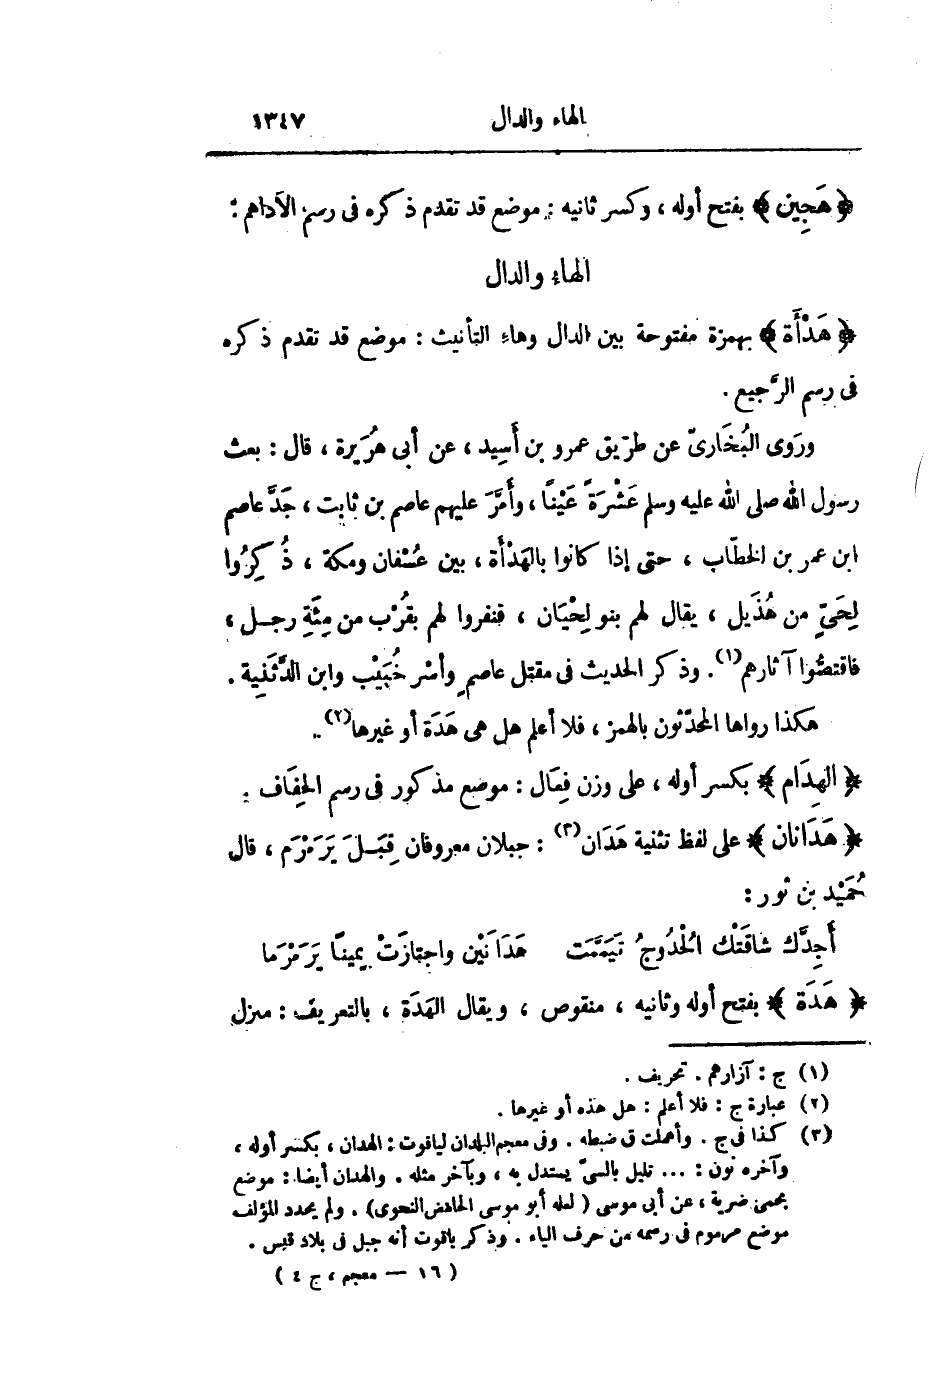 الهاء والدال ١٣٤٧
﴿ هَجِين ﴾ بفتح أوله ، وكسر ثانيه : موضع قد تقدم ذكره فى رسم الأداهم :
الهاء والدال
﴿ هَدْأَة ﴾ بهمزة مفتوحة بين الدال وهاء التأنيث : موضع قد تقدم ذكره
فى رسم الرَّجيع .
ورَوى البُخَارىّ عن طريق عمرو بن أَسِيد ، عن أبى هُرَيرة ، قال : بعث
رسول الله صلى الله عليه وسلم عَشْرَةً عَيْنًا ، وأَمَّرَ عليهم عاصم بن ثابت ، جَدَّ عاصم
ابن عمر بن الخطّاب ، حتى إذا كانوا بالهَدْأة ، بين عُسْفان ومكة ، ذُكِرُوا
لِحَىٍّ من هُذَيل ، يقال لهم بنو لِحْيَان ، فنفروا لهم بقُرْب من مِئَةِ رجل ،
فاقتصُّوا آثارهم(١) . وذكر الحديث فى مقتل عاصمٍ وأسْر خُبَيْب وابن الدَّثَنِية .
هكذا رواها المحدّثون بالهمز ، فلا أعلم هل هى هَدَة أو غيرها(٢) ..
﴿ الهِدَام ﴾ بكسر أوله ، على وزن فِعَال : موضع مذكور فى رسم الحِفَاف .
﴿ هَدَانان ﴾ على لفظ تثنية هَدَان(٣) : جبلان معروفان قِبَلَ يَرَمْرَم ، قال
حُمَيْد بن ثور :
أَجِدَّك شاقَتْك الُحْدُوجُ تَيَمَّمَت هَدَانَيْن واجتازَتْ يمينًا يَرَمْرَما
﴿ هَدَة ﴾ بفتح أوله وثانيه ، منقوص ، ويقال الهَدَة ، بالتعريف : منزل
(١) ج : آزارهم . تحريف .
(٢) عبارة ج : فلا أعلم : هل هذه أو غيرها .
(٣) كذا فى ج . وأهملت ق ضبطه . وفى معجم البلدان لياقوت : الهدان ، بكسر أوله ،
وآخره نون : ... تليل بالسىّ يستدل به ، وبآخر مثله . والهدان أيضا : موضع
بحمى ضرية ، عن أبى موسى ( لعله أبو موسى الحامض النحوى) . ولم يحدد المؤلف
موضع مرموم فى رسمه من حرف الياء . وذكر ياقوت أنه جبل فى بلاد قيس .
( ١٦ — معجم ، ج ٤ )